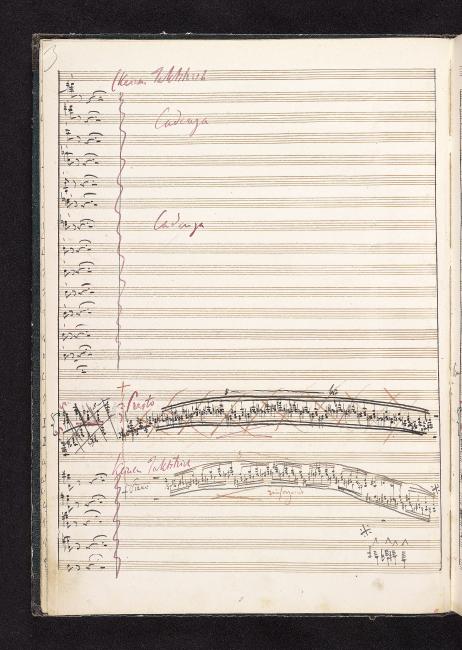 3
(Keinen Taktstrich
Cadenza
Cadenza
Presto
8
Keinen Taktstrich
Piano
8